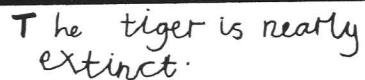 The tiger is nearly
extinct.